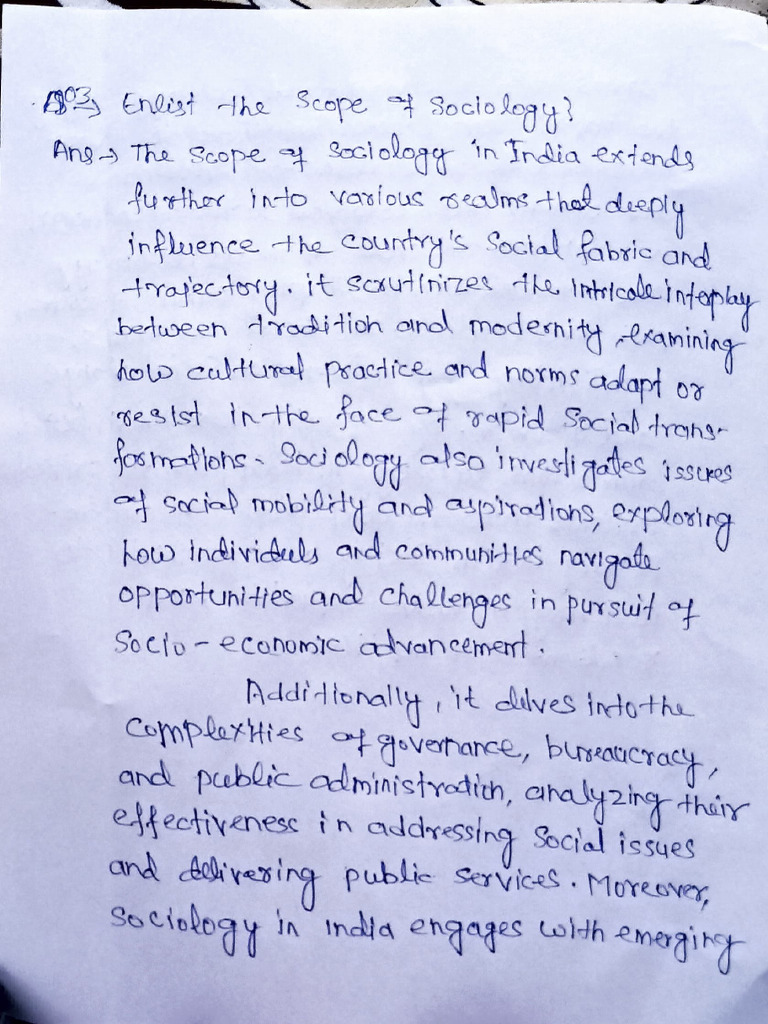 Q03→ Enlist the Scope of Sociology?
Ans→ The Scope of sociology in India extends
further into various realms that deeply
influence the country's Social fabric and
trajectory. it scrutinizes the intricate interplay
between tradition and modernity, examining
how cultural practice and norms adapt or
resist in the face of rapid Social trans-
formations. Sociology also investigates issues
of social mobility and aspirations, exploring
how individuls and communities navigate
opportunities and challenges in pursuit of
Socio-economic advancement.
Additionally, it delves into the
complexities of governance, bureaucracy,
and public administration, analyzing their
effectiveness in addressing Social issues
and delivering public services. Moreover,
Sociology in india engages with emerging